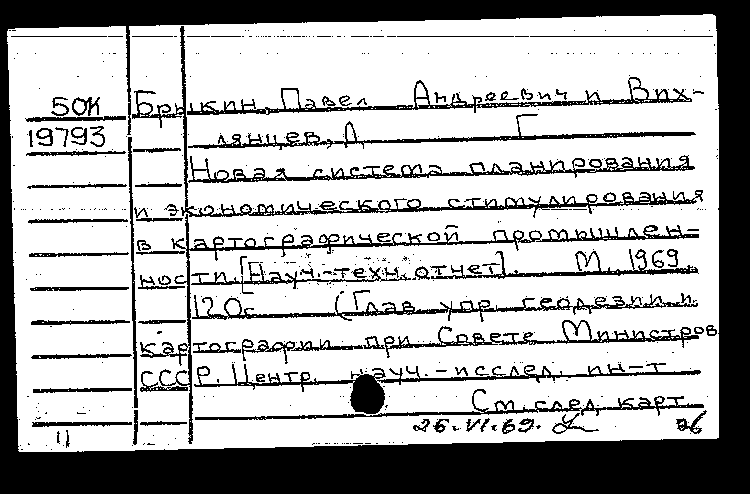 50К Брыкин, Павел Андреевич и Вих-
19793 лянцев, Д Г
Новая система планирования
и экономического стимулирования
в картографической промышлен-
ности. [Науч.-техн. отчет]. М., 1969.
120с (Глав. упр. геодезии и
картографии при Совете Министров
СССР. Центр. науч.-исслед. ин-т
См. след. карт.
11 26.VI.69.